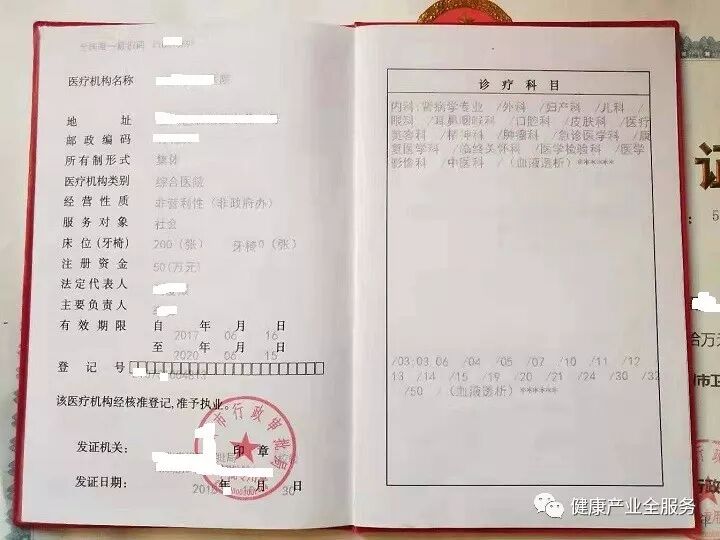 医疗机构名称
地 址
邮政编码
所有制形式 集体
医疗机构类别 综合医院
经营性质 非营利性（非政府办）
服务对象 社会
床位(牙椅) 200（张） 牙椅0（张）
注册资金 50(万元)
法定代表人
主要负责人
有效期限 自 2017 年 06 月 16 日
至 2020 年 06 月 15 日
登记号
该医疗机构经核准登记,准予执业。
发证机关: 印章
发证日期: 年 10 月 30 日
市行政审批局
诊疗科目
内科:肾病学专业 /外科 /妇产科 /儿科 /
眼科 /耳鼻咽喉科 /口腔科 /皮肤科 /医疗
美容科 /精神科 /肿瘤科 /急诊医学科 /康
复医学科 /临终关怀科 /医学检验科 /医学
影像科 /中医科 /（血液透析）******
/03;03.06 /04 /05 /07 /10 /11 /12
/13 /14 /15 /19 /20 /21 /24 /30 /32
/50 /（血液透析）******
证
5
拾万元
市正
行政
健康产业全服务